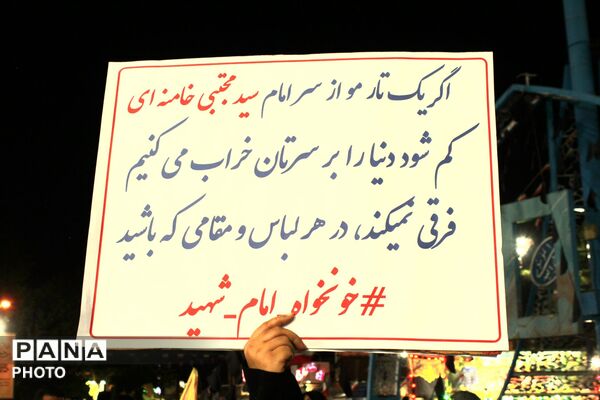 اگر یک تار مو از سر امام سید مجتبی خامنه ای
کم شود دنیا را بر سرتان خراب می کنیم
فرقی نمیکند، در هر لباس و مقامی که باشید
#خونخواه_امام_شهید
PANA
PHOTO